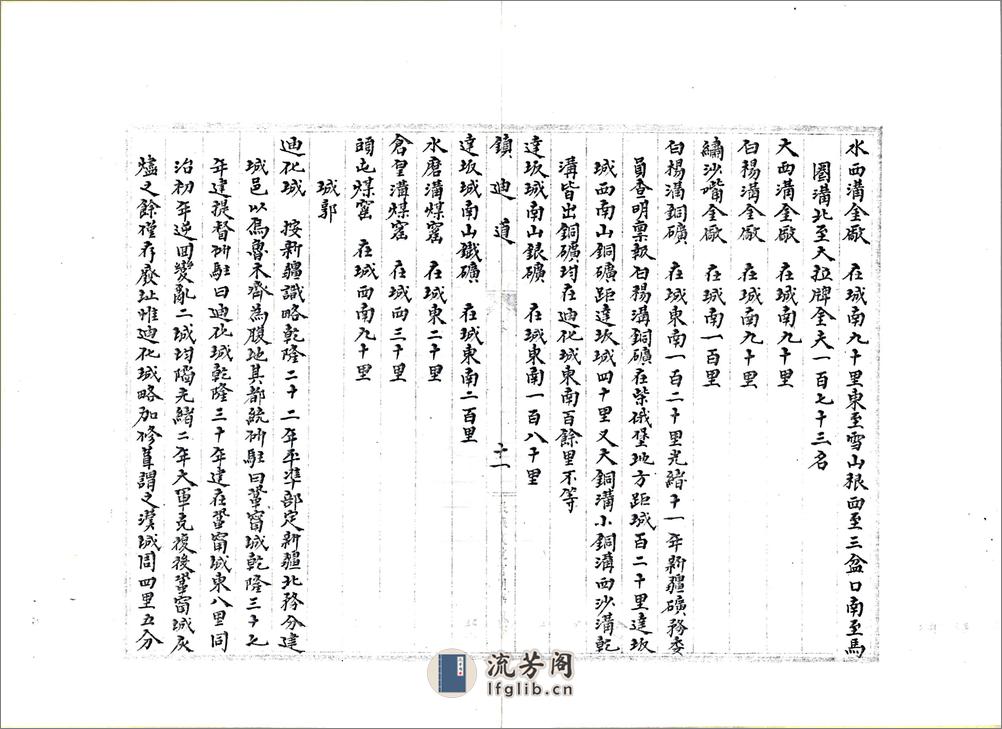 水西溝金廠　在城南九十里東至雪山根西至三盆口南至馬
圈溝北至大拉牌金夫一百七十三名
大西溝金廠　在城南九十里
白楊溝金廠　在城南九十里
繡沙嘴金廠　在城南一百里
白楊溝銅礦　在城東南一百二十里光緒十一年新疆礦務委
員查明稟報白楊溝銅礦在柴俄堡地方距城百二十里達坂
城西南山銅礦距達坂城四十里又大銅溝小銅溝西沙溝乾
溝皆出銅礦均在迪化城東南百餘里不等
達坂城南山銀礦　在城東南一百八十里
鎮迪道　十一
達坂城南山鐵礦　在城東南二百里
水磨溝煤窰　在城東二十里
倉房溝煤窰　在城西三十里
頭屯煤窰　在城西南九十里
城郭
迪化城　按新疆識略乾隆二十二年平準部定新疆北路分建
城邑以烏魯木齊為腹地其都統所駐曰鞏甯城乾隆三十七
年建提督所駐曰迪化城乾隆三十年建在鞏甯城東八里同
治初年逆回變亂二城均陷光緒二年大軍克復後鞏甯城灰
燼之餘僅存廢址惟迪化城略加修葺謂之漢城周四里五分
流芳阁
lfglib.cn